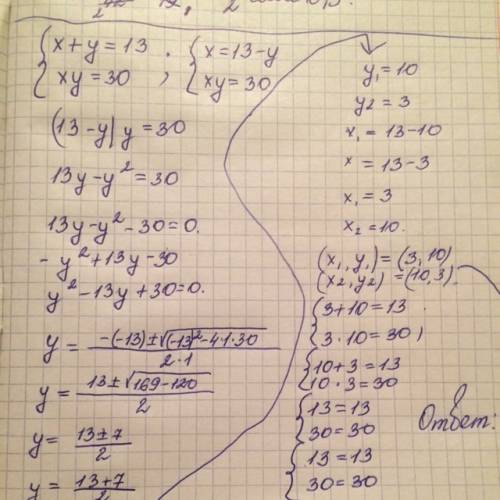 {x+y=13 ; {x=13-y
{xy=30 {xy=30
(13-y) y=30
13y-y²=30
13y-y²-30=0.
-y²+13y-30
y²-13y+30=0.
y= (-(-13)±√((-13)²-4·1·30))/(2·1)
y= (13±√(169-120))/2
y= (13±7)/2
y= (13+7)/2
y₁=10
y2=3
x₁=13-10
x=13-3
x₁=3
x₂=10.
(x₁, y₁)=(3, 10)
(x2, y2)=(10,3).
{3+10=13.
{3·10=30)
{10+3=13
{10·3=30
{13=13
{30=30
{13=13
{30=30
Ответ: